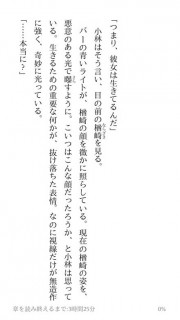 「つまり、彼女は生きてるんだ」
小林はそう言い、目の前の楢崎を見る。
バーの青いライトが、楢崎の顔を微かに照らしている。現在の楢崎の姿を、
悪意のある光で曝すように。こいつはこんな顔だったろうか、と小林は思って
いる。生きるための重要な何かが、抜け落ちた表情。なのに視線だけが無造作
に強く、奇妙に光っている。
「……本当に?」
章を読み終えるまで:3時間25分
0%